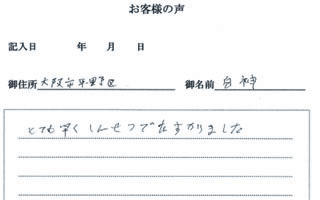 お客様の声
記入日 年 月 日
御住所 大阪市平野区 御名前 白神
とても早くしんせつでたすかりました